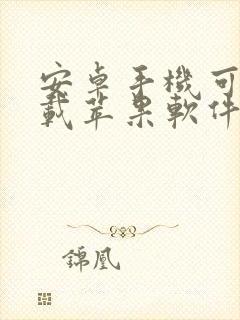 安卓手機可
載苹果軟件
錦凰